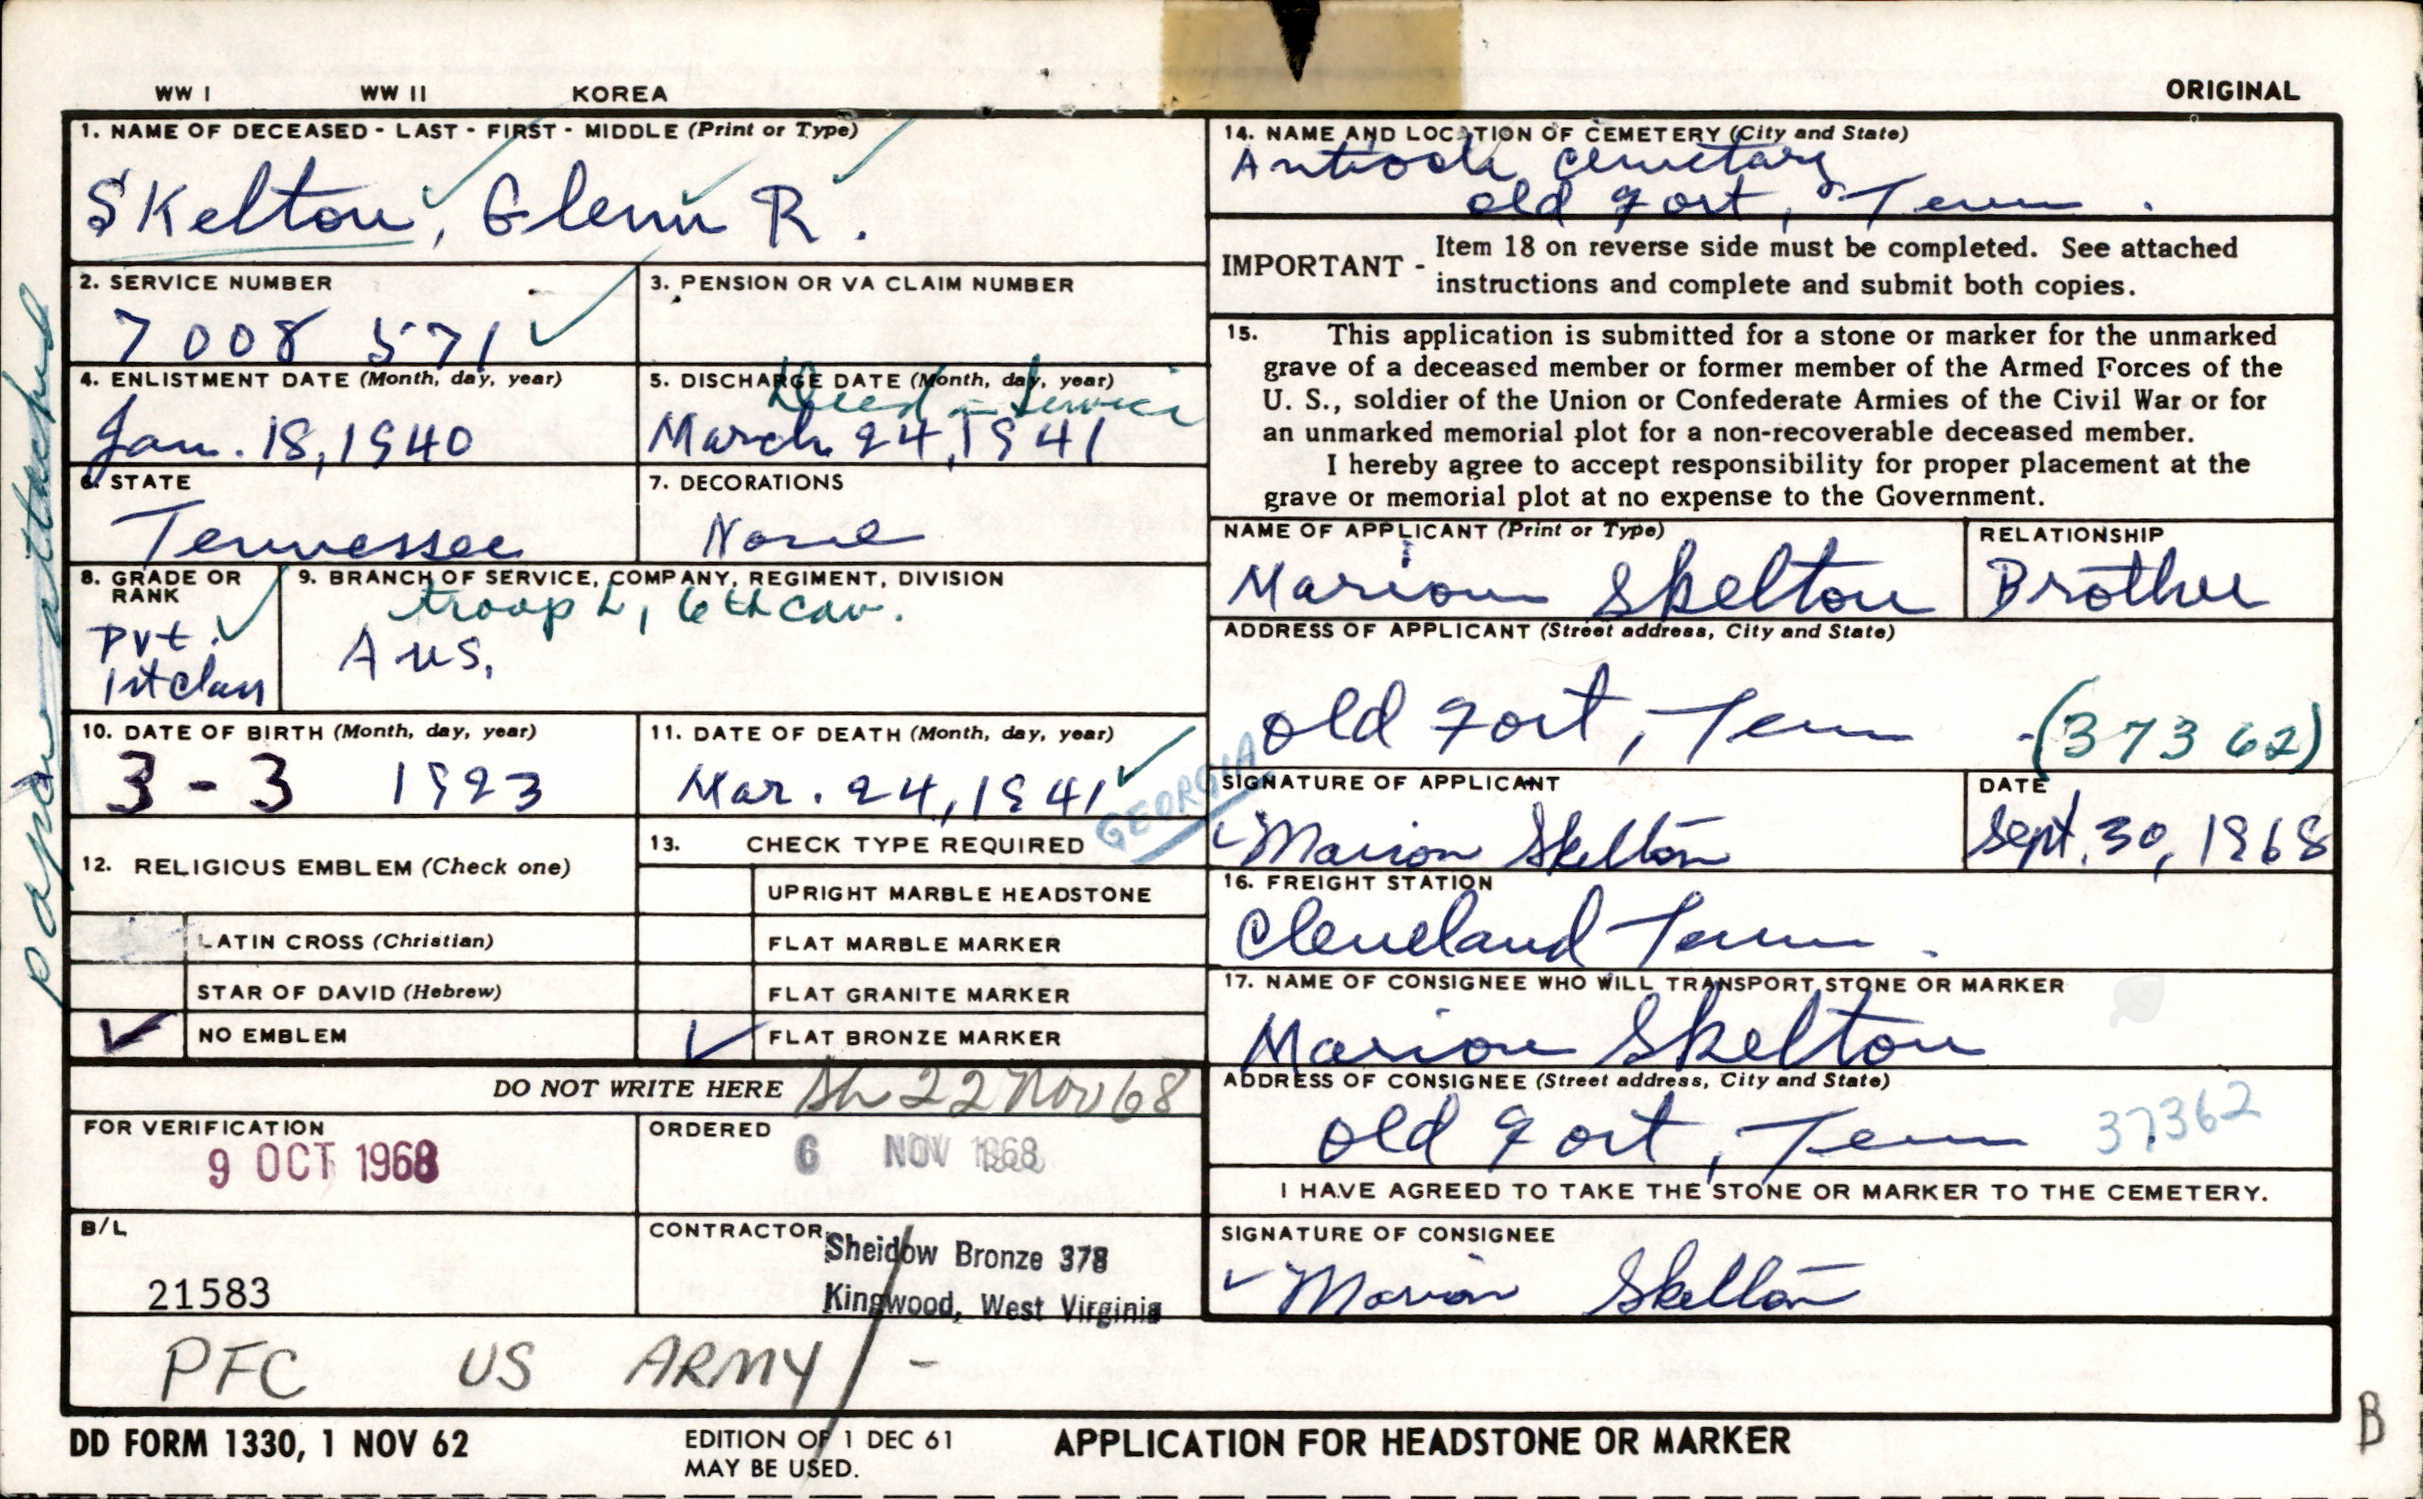 WW I WW II KOREA
ORIGINAL
1. NAME OF DECEASED - LAST - FIRST - MIDDLE (Print or Type)
Skelton, Glenn R.
2. SERVICE NUMBER
7008 571
3. PENSION OR VA CLAIM NUMBER
4. ENLISTMENT DATE (Month, day, year)
Jan. 18, 1940
5. DISCHARGE DATE (Month, day, year)
Died in Service
March 24, 1941
6. STATE
Tennessee
7. DECORATIONS
None
8. GRADE OR RANK
Pvt.
1st Class
9. BRANCH OF SERVICE, COMPANY, REGIMENT, DIVISION
troop L, 6th cav.
AUS.
10. DATE OF BIRTH (Month, day, year)
3 - 3 1923
11. DATE OF DEATH (Month, day, year)
Mar. 24, 1941
GEORGIA
12. RELIGIOUS EMBLEM (Check one)
LATIN CROSS (Christian)
STAR OF DAVID (Hebrew)
NO EMBLEM
13. CHECK TYPE REQUIRED
UPRIGHT MARBLE HEADSTONE
FLAT MARBLE MARKER
FLAT GRANITE MARKER
FLAT BRONZE MARKER
DO NOT WRITE HERE
22 Nov 68
FOR VERIFICATION
9 OCT 1968
ORDERED
6 NOV 1968
B/L
21583
CONTRACTOR
Sheidow Bronze 378
Kingwood, West Virginia
PFC US ARMY -
papers attached
14. NAME AND LOCATION OF CEMETERY (City and State)
Antioch Cemetary
Old Fort, Tenn.
IMPORTANT - Item 18 on reverse side must be completed. See attached
instructions and complete and submit both copies.
15. This application is submitted for a stone or marker for the unmarked
grave of a deceased member or former member of the Armed Forces of the
U. S., soldier of the Union or Confederate Armies of the Civil War or for
an unmarked memorial plot for a non-recoverable deceased member.
I hereby agree to accept responsibility for proper placement at the
grave or memorial plot at no expense to the Government.
NAME OF APPLICANT (Print or Type)
Marion Skelton
RELATIONSHIP
Brother
ADDRESS OF APPLICANT (Street address, City and State)
Old Fort, Tenn - (37362)
SIGNATURE OF APPLICANT
Marion Skelton
DATE
Sept. 30, 1968
16. FREIGHT STATION
Cleveland Tenn.
17. NAME OF CONSIGNEE WHO WILL TRANSPORT STONE OR MARKER
Marion Skelton
ADDRESS OF CONSIGNEE (Street address, City and State)
Old Fort, Tenn 37362
I HAVE AGREED TO TAKE THE STONE OR MARKER TO THE CEMETERY.
SIGNATURE OF CONSIGNEE
Marion Skelton
B
DD FORM 1330, 1 NOV 62
EDITION OF 1 DEC 61
MAY BE USED.
APPLICATION FOR HEADSTONE OR MARKER